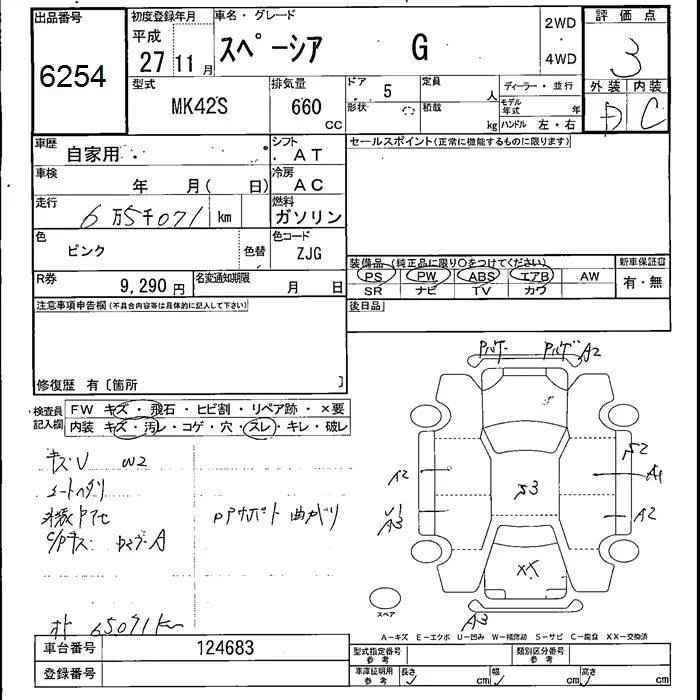 出品番号 初度登録年月 車名・グレード 2WD 評価点
6254 平成 27 11月 スペーシア G ・ 4WD 3
型式 排気量 ドア 5 定員 人 ディーラー・並行 外装 内装
MK42S 660 CC 形状 積載 kg モデル年式 年 D C
ハンドル 左・右
車歴 自家用・ シフト AT セールスポイント(正常に機能するものに限ります)
車検 年 月( 日) 冷房 AC
走行 6万5千071 km 燃料 ガソリン
色 ピンク 色替 色コード ZJG
装備品 (純正品に限り○をつけてください) 新車保証書
PS PW ABS エアB AW 有・無
SR ナビ TV カワ
R券 9,290円 名変通知期限 月 日
後日品
注意事項申告欄(不具合内容等は具体的に記入して下さい)
修復歴 有〔箇所 〕
検査員記入欄 FW キズ・飛石・ヒビ割・リペア跡・×要
内装 キズ・汚レ・コゲ・穴・スレ・キレ・破レ
キズU W2
シートヘタリ
PPサポート 曲がり
A
65071km
A2
A2 S2 A1
S3
A3 A2
XX
スペア
A3
A-キズ E-エクボ U-凹み W-補修跡 S-サビ C-腐食 XX-交換済
車台番号 124683
登録番号
型式指定番号 参考 類別区分番号 参考
車庫証明用 参考 長さ cm 幅 cm 高さ cm